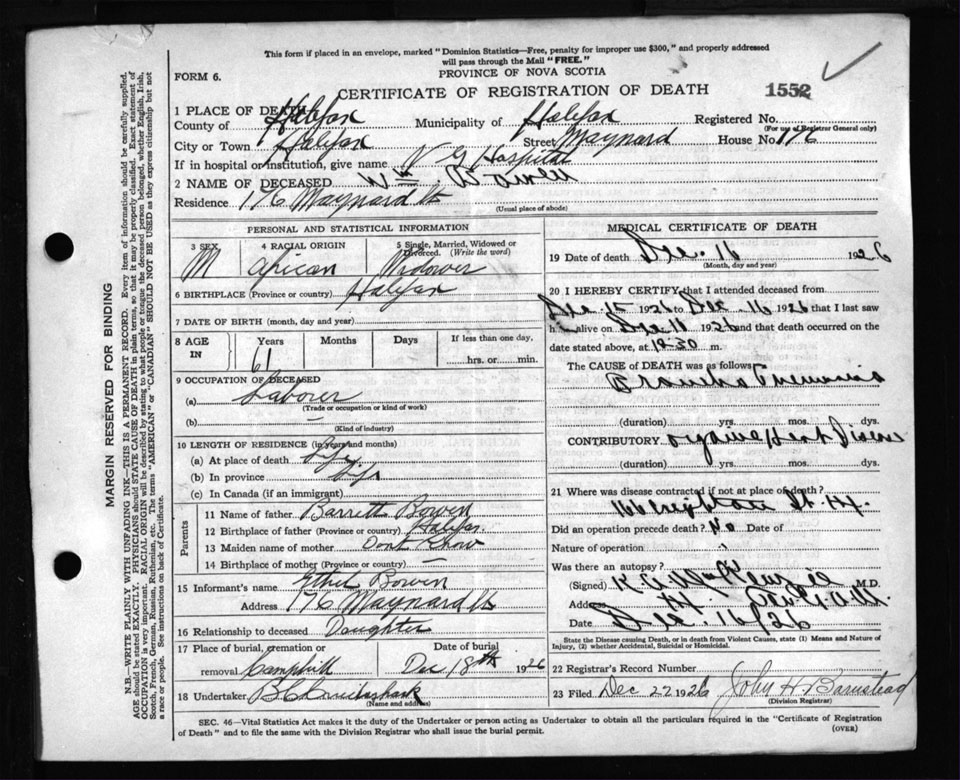 This form if placed in an envelope, marked "Dominion Statistics—Free, penalty for improper use $300," and properly addressed
will pass through the Mail "FREE."
PROVINCE OF NOVA SCOTIA
FORM 6.
CERTIFICATE OF REGISTRATION OF DEATH 1552
1 PLACE OF DEATH
County of Halifax Municipality of Halifax Registered No.
(For use of Registrar General only)
City or Town Halifax Street Maynard House No. 176
If in hospital or institution, give name V G Hospital
2 NAME OF DECEASED Wm Bowen
Residence 176 Maynard St
(Usual place of abode)
PERSONAL AND STATISTICAL INFORMATION
3 SEX 4 RACIAL ORIGIN 5 Single, Married, Widowed or Divorced. (Write the word)
M African Widower
6 BIRTHPLACE (Province or country) Halifax
7 DATE OF BIRTH (month, day and year)
8 AGE IN Years Months Days If less than one day,
61 hrs. or min.
9 OCCUPATION OF DECEASED
(a) Laborer
(Trade or occupation or kind of work)
(b) —
(Kind of industry)
10 LENGTH OF RESIDENCE (in years and months)
(a) At place of death Life
(b) In province Life
(c) In Canada (if an immigrant)
Parents
11 Name of father Barrett Bowen
12 Birthplace of father (Province or country) Halifax.
13 Maiden name of mother Dont Know
14 Birthplace of mother (Province or country) —
15 Informant's name Ethel Bowen
Address 176 Maynard St
16 Relationship to deceased Daughter
17 Place of burial, cremation or Date of burial
removal Camphill Dec 18th 1926
18 Undertaker
(Name and address)
MEDICAL CERTIFICATE OF DEATH
19 Date of death Dec. 16 1926
(Month, day and year)
20 I HEREBY CERTIFY that I attended deceased from
Dec. 15 1926 to Dec. 16 1926 that I last saw
h alive on Dec 16 1926 and that death occurred on
date stated above, at m.
The CAUSE OF DEATH was as follows
Broncho Pneumonia
(duration) yrs. mos. dys.
CONTRIBUTORY Organic Heart Disease
(duration) yrs. mos. dys.
21 Where was disease contracted if not at place of death?
Did an operation precede death? No Date of
Nature of operation
Was there an autopsy?
(Signed) M.D.
Add
Date Dec. 16/26
State the Disease causing Death, or in death from Violent Causes, state (1) Means and Nature of
Injury, (2) whether Accidental, Suicidal or Homicidal.
22 Registrar's Record Number
23 Filed Dec 22 1926 John H Barnstead
(Division Registrar)
SEC. 46—Vital Statistics Act makes it the duty of the Undertaker or person acting as Undertaker to obtain all the particulars required in the "Certificate of Registration
of Death" and to file the same with the Division Registrar who shall issue the burial permit.
(OVER)
MARGIN RESERVED FOR BINDING
N.B.—WRITE PLAINLY WITH UNFADING INK—THIS IS A PERMANENT RECORD. Every item of information should be carefully supplied.
AGE should be stated EXACTLY. PHYSICIANS should STATE CAUSE OF DEATH in plain terms, so that it may be properly classified. Exact statement of
OCCUPATION is very important. RACIAL ORIGIN will be described by stating to what people or tongue the deceased person belonged, whether English, Irish,
Scotch, French, German, Russian, Ruthenian, etc. The terms "AMERICAN" or "CANADIAN" SHOULD NOT BE USED as they express citizenship but not
a race or people. See instructions on back of Certificate.